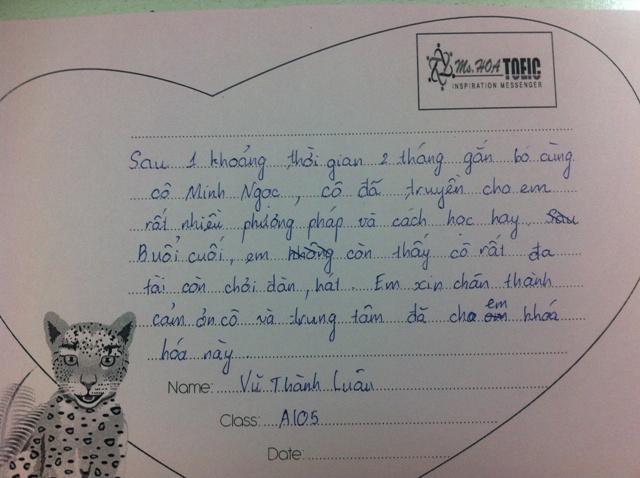 Ms. HOA TOEIC
INSPIRATION MESSENGER
Sau 1 khoảng thời gian 2 tháng gắn bó cùng
cô Minh Ngọc, cô đã truyền cho em
rất nhiều phương pháp và cách học hay. Sau
Buổi cuối, em không còn thấy cô rất đa
tài còn chơi đàn, hát. Em xin chân thành
cảm ơn cô và trung tâm đã cho em em khoá
hóa này.
Name: Vũ Thành Luân
Class: A105
Date: